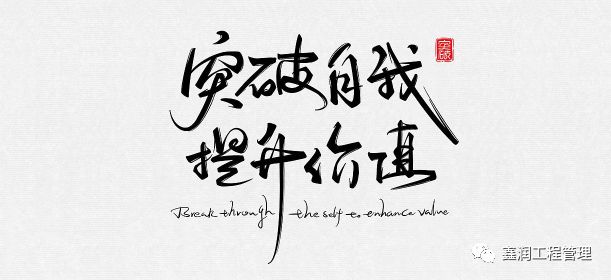 突破自我
突破
提升价值
Break through the self to enhance value
鑫润工程管理